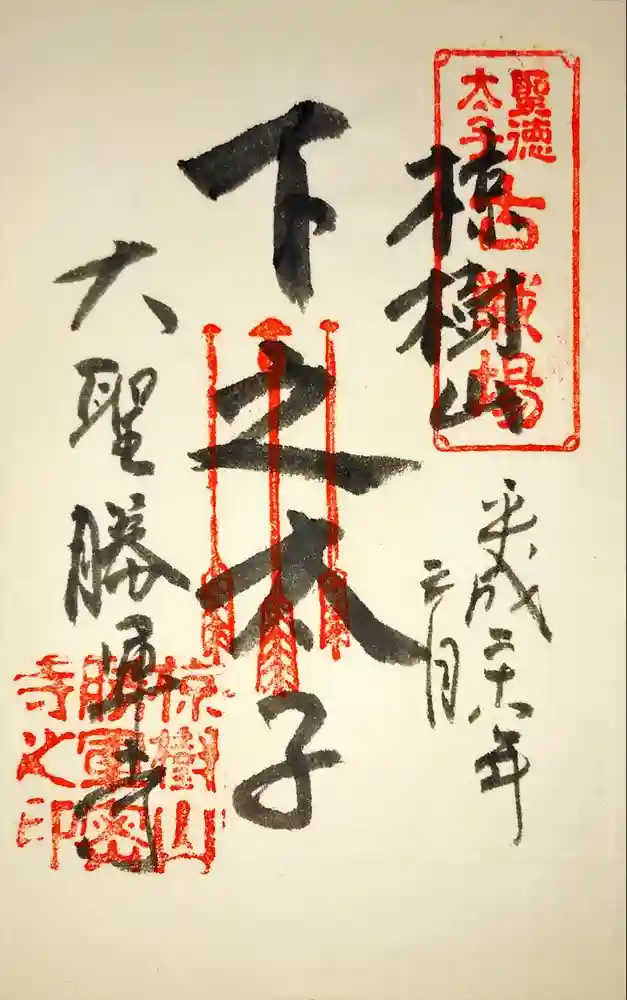 聖徳
太子
古戦場
椋樹山
平成二十六年
月
下之太子
大聖勝軍寺
椋樹山
勝軍密
寺之印